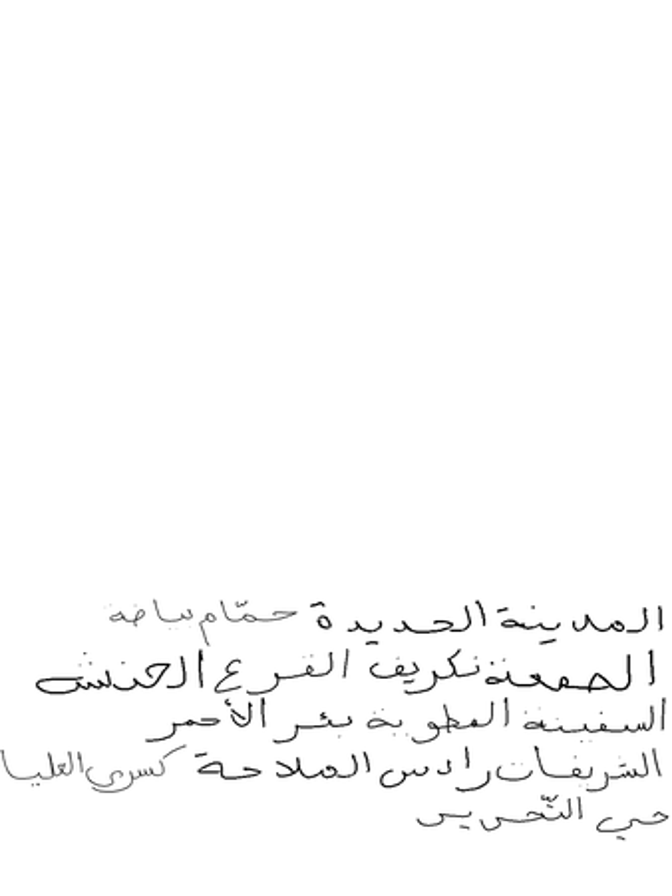 المدينة الجديدة حمّام بياضة
الصمعة تكريف الفرع الحنش
السفينة المطوية بئر الأحمر
الشريفات رادس الملاحة كسرى العليا
حي التّحرير